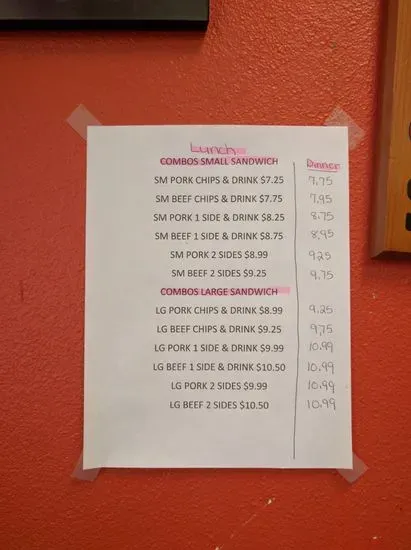 Lunch
COMBOS SMALL SANDWICH Dinner
SM PORK CHIPS & DRINK $7.25 7.75
SM BEEF CHIPS & DRINK $7.75 7.95
SM PORK 1 SIDE & DRINK $8.25 8.75
SM BEEF 1 SIDE & DRINK $8.75 8.95
SM PORK 2 SIDES $8.99 9.25
SM BEEF 2 SIDES $9.25 9.75
COMBOS LARGE SANDWICH
LG PORK CHIPS & DRINK $8.99 9.25
LG BEEF CHIPS & DRINK $9.25 9.75
LG PORK 1 SIDE & DRINK $9.99 10.99
LG BEEF 1 SIDE & DRINK $10.50 10.99
LG PORK 2 SIDES $9.99 10.99
LG BEEF 2 SIDES $10.50 10.99